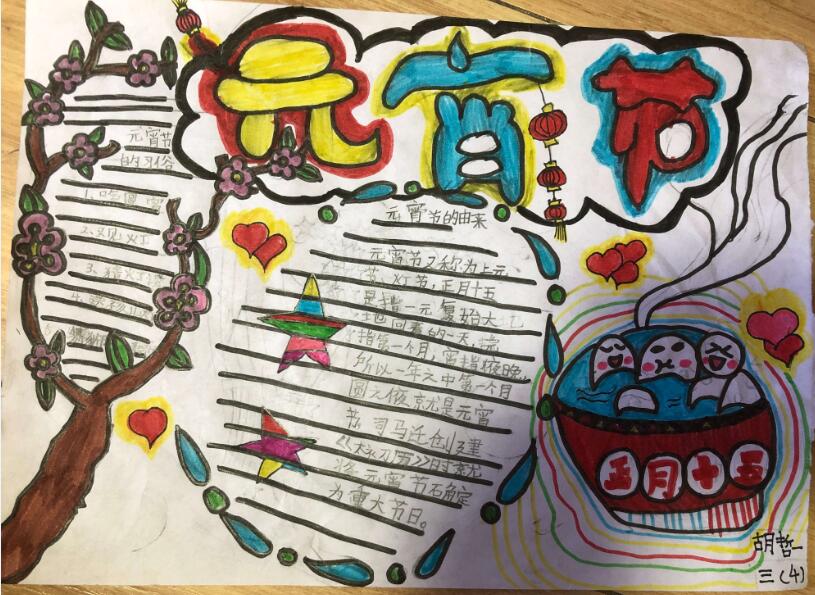 元宵节
元宵节
的习俗
1、吃
2、观灯
3、猜灯
4、
元宵节的由来
元宵节又称为上元
节,灯节,正月十五
是指一元复始大
地回春的一天,
指第一个月,宵指夜晚,
所以一年之中第一个月
圆之夜就是元宵
节,司马迁创建
《太初历》时就
将元宵节确定
为重大节日。
正月十五
胡哲一
三(4)